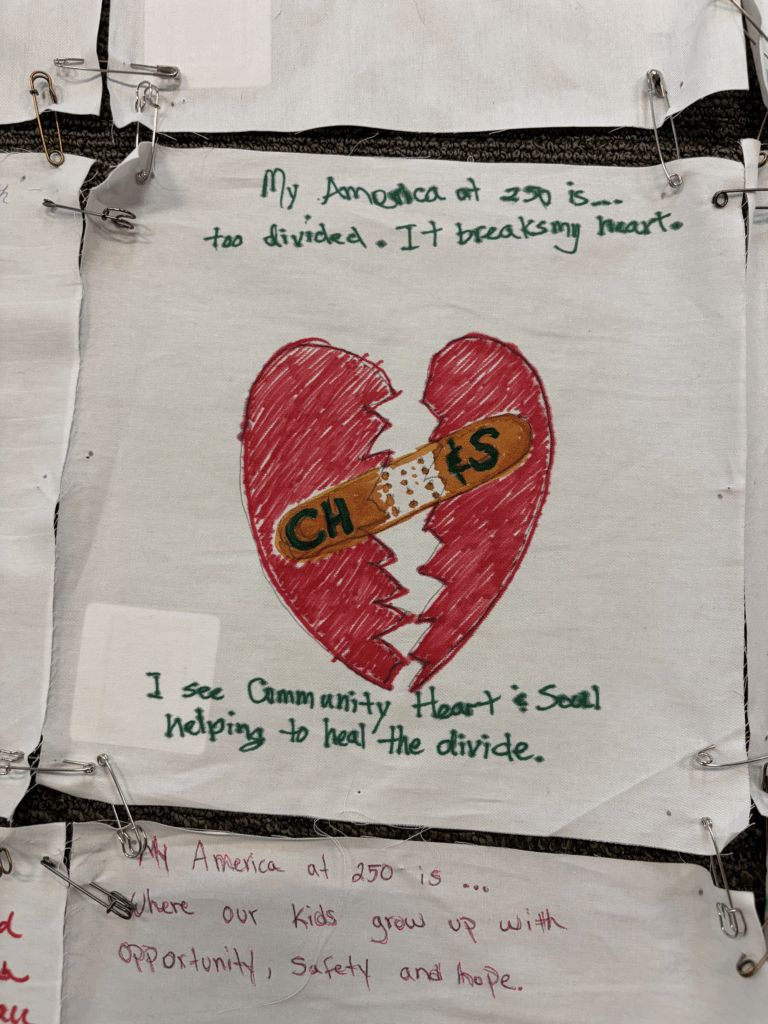 My America at 250 is...
too divided. It breaks my heart.
CH &S
I see Community Heart & Soul
helping to heal the divide.
My America at 250 is ...
Where our kids grow up with
opportunity, safety and hope.